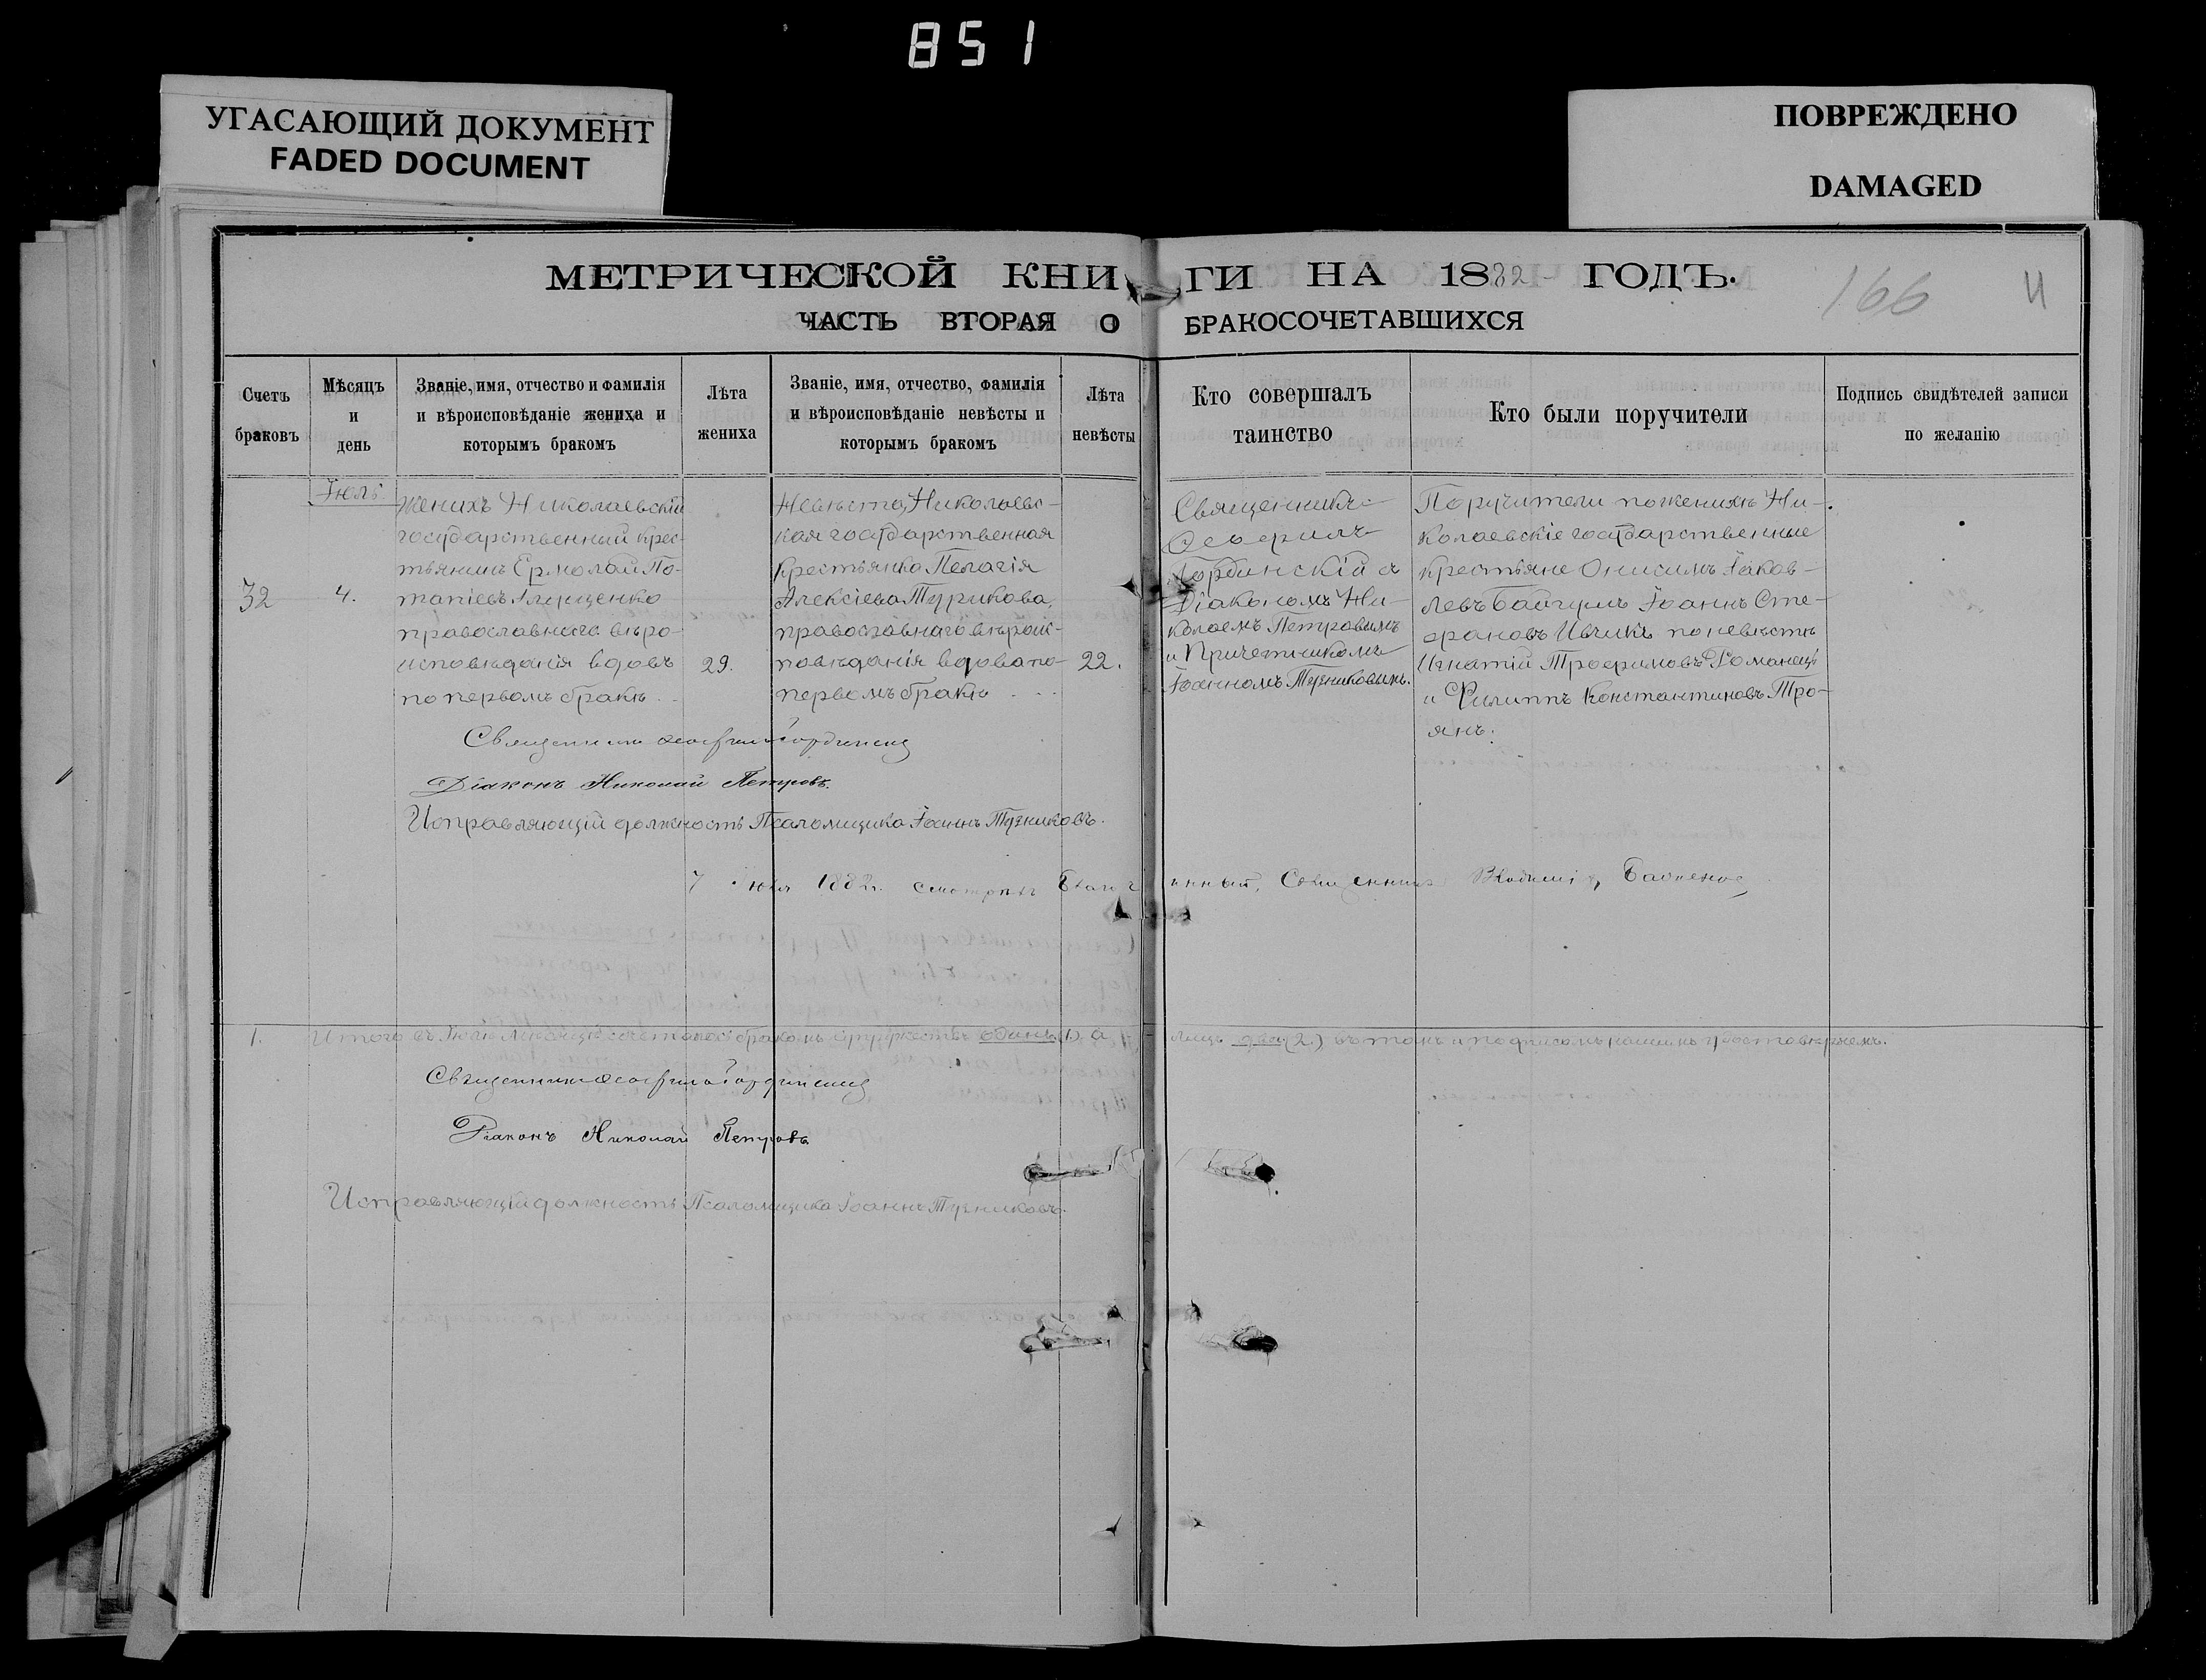 851
УГАСАЮЩИЙ ДОКУМЕНТ
FADED DOCUMENT
ПОВРЕЖДЕНО
DAMAGED
МЕТРИЧЕСКОЙ КНИГИ НА 1882 ГОДЪ.
166
ЧАСТЬ ВТОРАЯ О БРАКОСОЧЕТАВШИХСЯ
Счетъ
браковъ
Мѣсяцъ
и
день
Званіе, имя, отчество и фамилія
и вѣроисповѣданіе жениха и
которымъ бракомъ
Лѣта
жениха
Званіе, имя, отчество, фамилія
и вѣроисповѣданіе невѣсты и
которымъ бракомъ
Лѣта
невѣсты
Кто совершалъ
таинство
Кто были поручители
Подпись свидѣтелей записи
по желанію
Іюль
32
4.
Женихъ Николаевскій
государственный крес-
тьянинъ Ермолай По-
тапіевъ Глущенко
православнаго вѣро-
исповѣданія вдовъ
по первомъ бракѣ
29.
Невѣста, Николаевс-
кая государственная
крестьянка Пелагія
Алексіева Турикова,
православнаго вѣроис-
повѣданія вдова по
первомъ бракѣ
22.
Священникъ
Ѳеофилъ
Гординскій съ
Діакономъ Ни-
колаемъ Петровымъ
и Причетникомъ
Іоанномъ
Поручители по женихѣ Ни-
колаевскіе государственные
крестьяне Онисимъ Іаков-
левъ Іоаннъ Сте-
фановъ Ивчикъ по невѣстѣ
Игнатій Трофимовъ Романецъ
и Филиппъ Константиновъ Тро-
янъ.
Священникъ Ѳеофилъ Гординскій
Діаконъ Николай Петровъ.
Исправляющій должность Псаломщика Іоаннъ
7 Іюля 1882 г. смотрѣлъ Благочинный, Священникъ
1. Итого въ Іюлѣ мѣсяцѣ бракомъ одинъ (1.) а лицъ два (2.), въ томъ и подписомъ нашимъ удостовѣряемъ.
Священникъ Ѳеофилъ Гординскій
Діаконъ Николай Петровъ
Исправляющій должность Псаломщика Іоаннъ